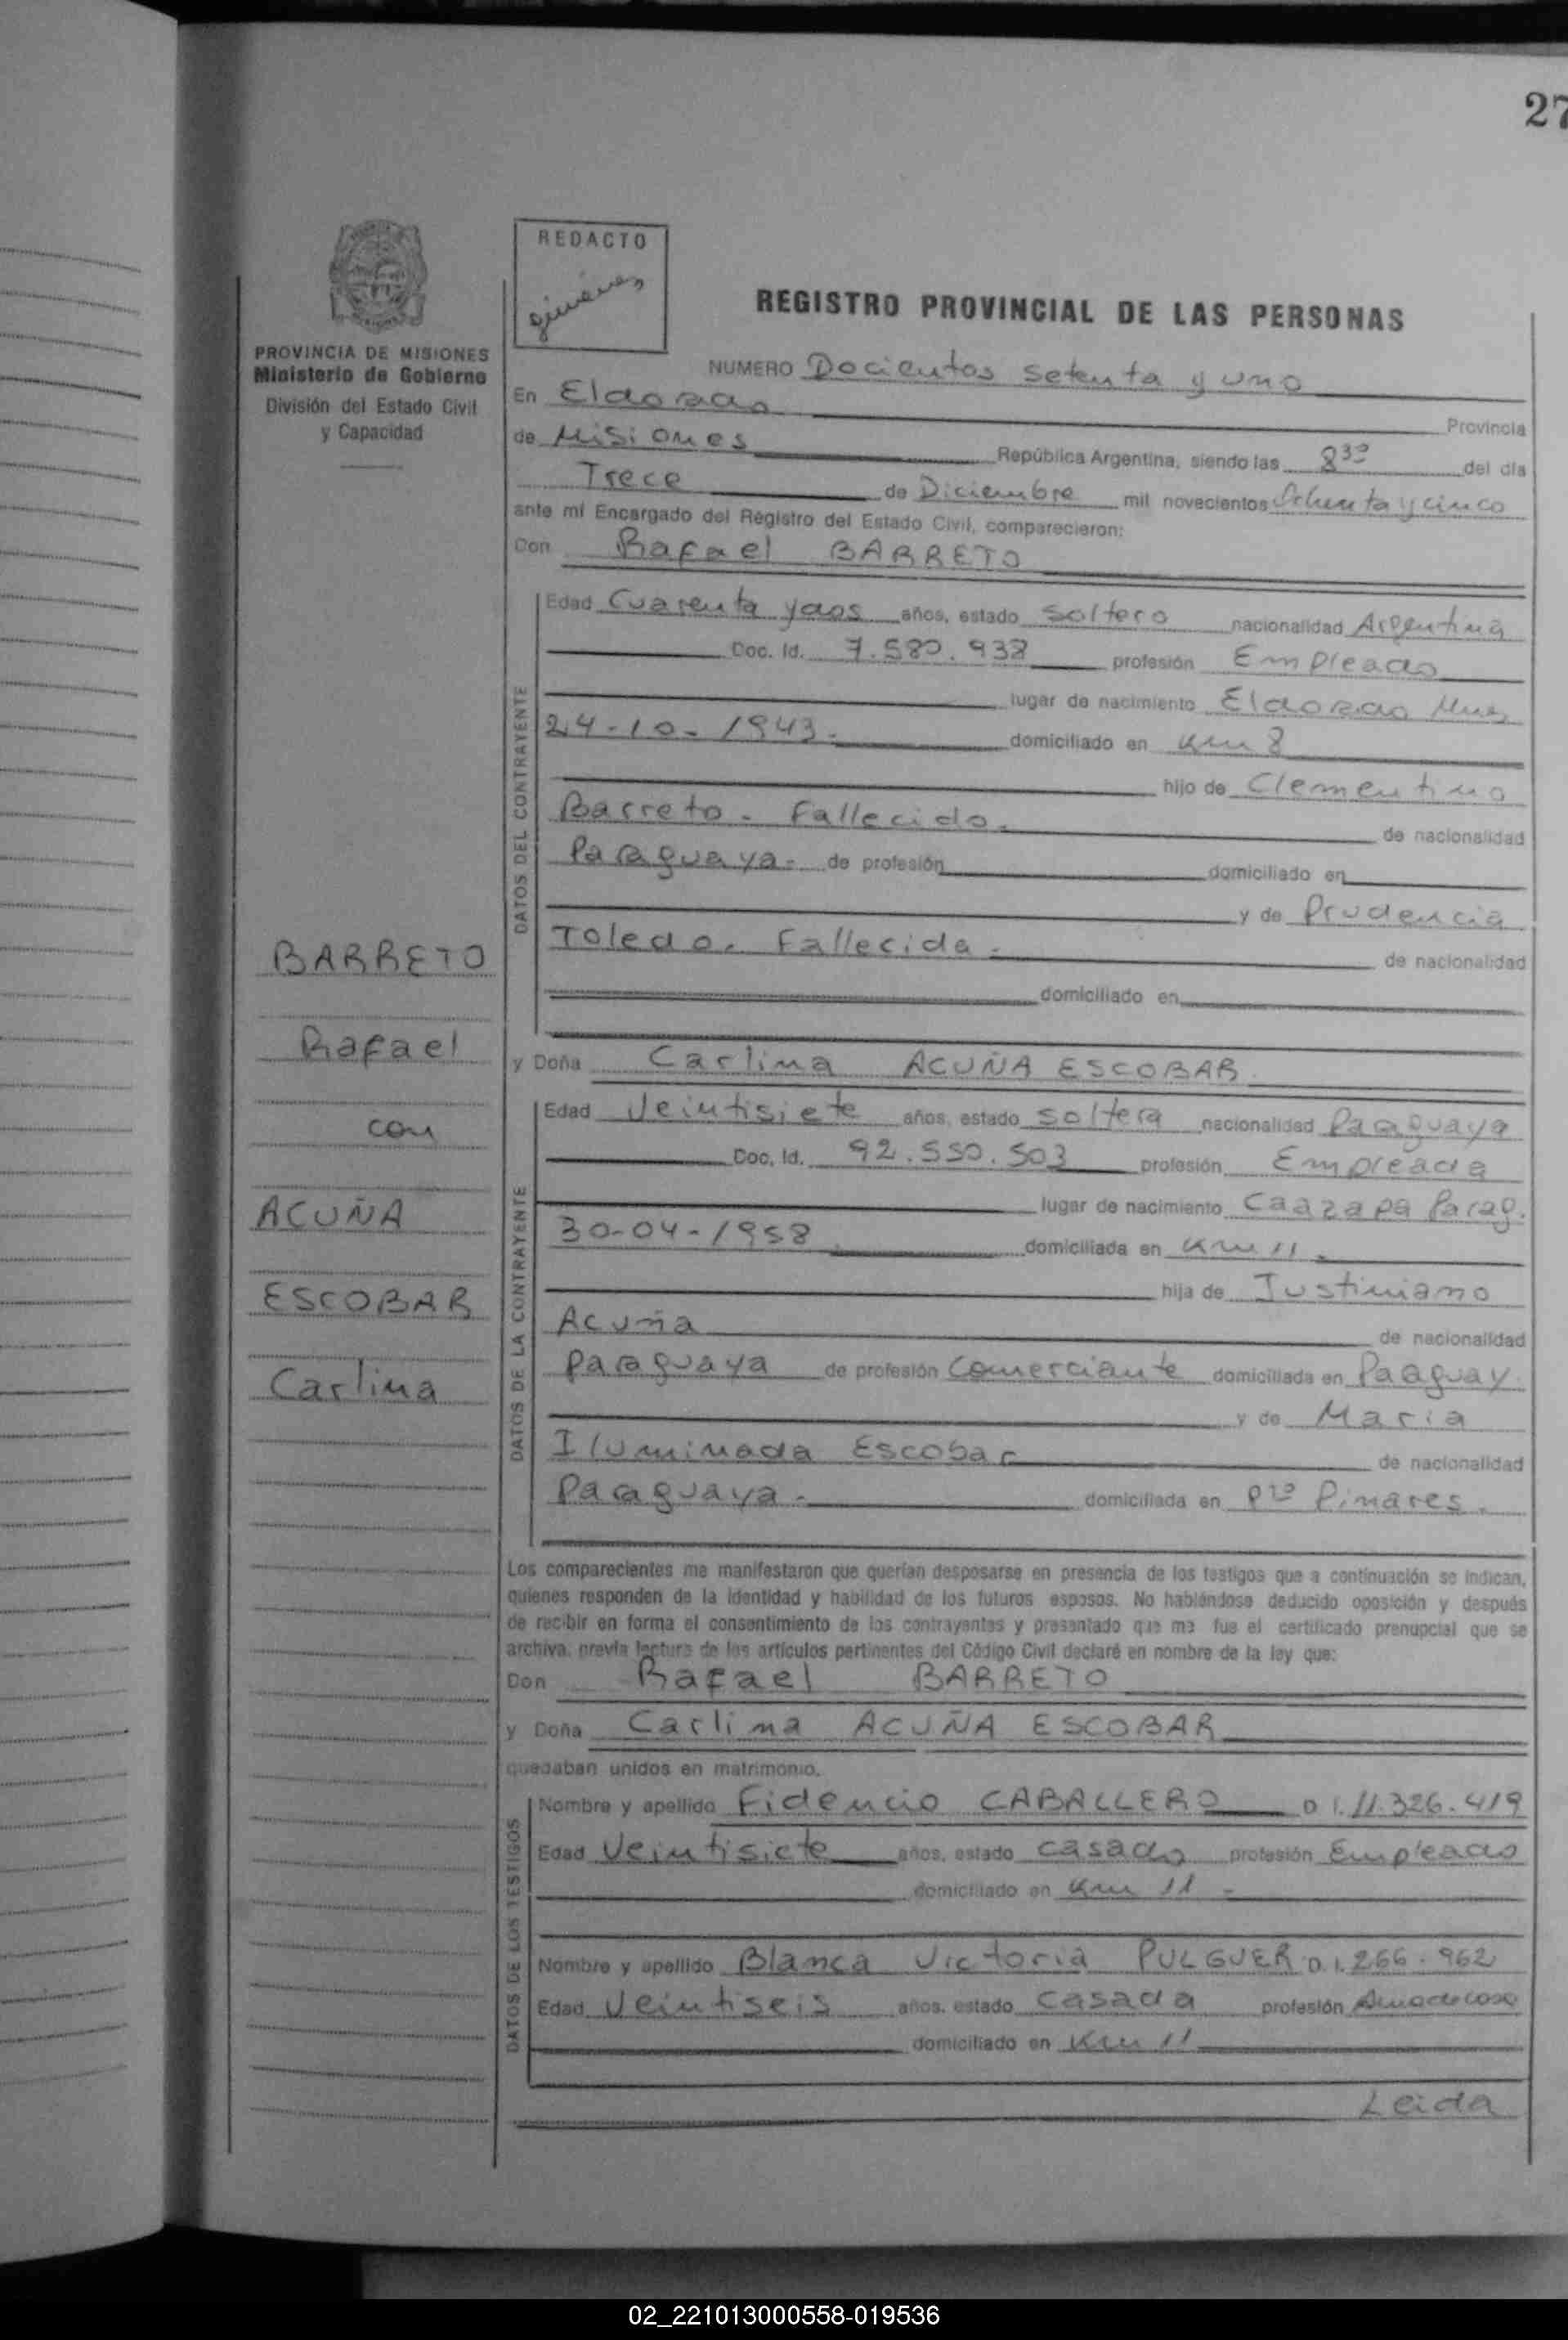 27
REDACTO
gimenez
PROVINCIA DE MISIONES
Ministerio de Gobierno
División del Estado Civil
y Capacidad
REGISTRO PROVINCIAL DE LAS PERSONAS
NUMERO Docientos setenta y uno
En Eldorado Provincia
de Misiones República Argentina, siendo las 8 30 del día
Trece de Diciembre mil novecientos Ochenta y cinco
ante mí Encargado del Registro del Estado Civil, comparecieron:
Don Rafael BARRETO
DATOS DEL CONTRAYENTE
Edad Cuarenta y dos años, estado soltero nacionalidad Argentina
Doc. Id. 7.580.938 profesión Empleado
lugar de nacimiento Eldorado Mnes
24-10-1943.- domiciliado en Km 8
hijo de Clementino
Barreto. Fallecido. de nacionalidad
Paraguaya- de profesión domiciliado en
y de Prudencia
Toledo. Fallecida- de nacionalidad
domiciliado en
y Doña Carlina ACUÑA ESCOBAR
DATOS DE LA CONTRAYENTE
Edad Veintisiete años, estado soltera nacionalidad Paraguaya
Doc. Id. 92.550.503 profesión Empleada
lugar de nacimiento Caazapa Parag.
30-04-1958 domiciliada en Km 11.
hija de Justiniano
Acuña de nacionalidad
Paraguaya de profesión Comerciante domiciliada en Paaguay.
y de Maria
Iluminada Escobar de nacionalidad
Paaguaya- domiciliada en Pto Pinares.
Los comparecientes me manifestaron que querían desposarse en presencia de los testigos que a continuación se indican,
quienes responden de la identidad y habilidad de los futuros esposos. No habiéndose deducido oposición y después
de recibir en forma el consentimiento de los contrayentes y presentado que me fue el certificado prenupcial que se
archiva, previa lectura de los artículos pertinentes del Código Civil declaré en nombre de la ley que:
Don Rafael BARRETO
y Doña Carlina ACUÑA ESCOBAR
quedaban unidos en matrimonio.
DATOS DE LOS TESTIGOS
Nombre y apellido Fidencio CABALLERO D.I. 11.326.419
Edad Veintisiete años, estado casado profesión Empleado
domiciliado en Km 11-
Nombre y apellido Blanca Victoria PULGUER D.I. 266.962
Edad Veintiseis años, estado casada profesión Ama de casa
domiciliado en Km 11
Leida
BARRETO
Rafael
con
ACUÑA
ESCOBAR
Carlina
02_221013000558-019536